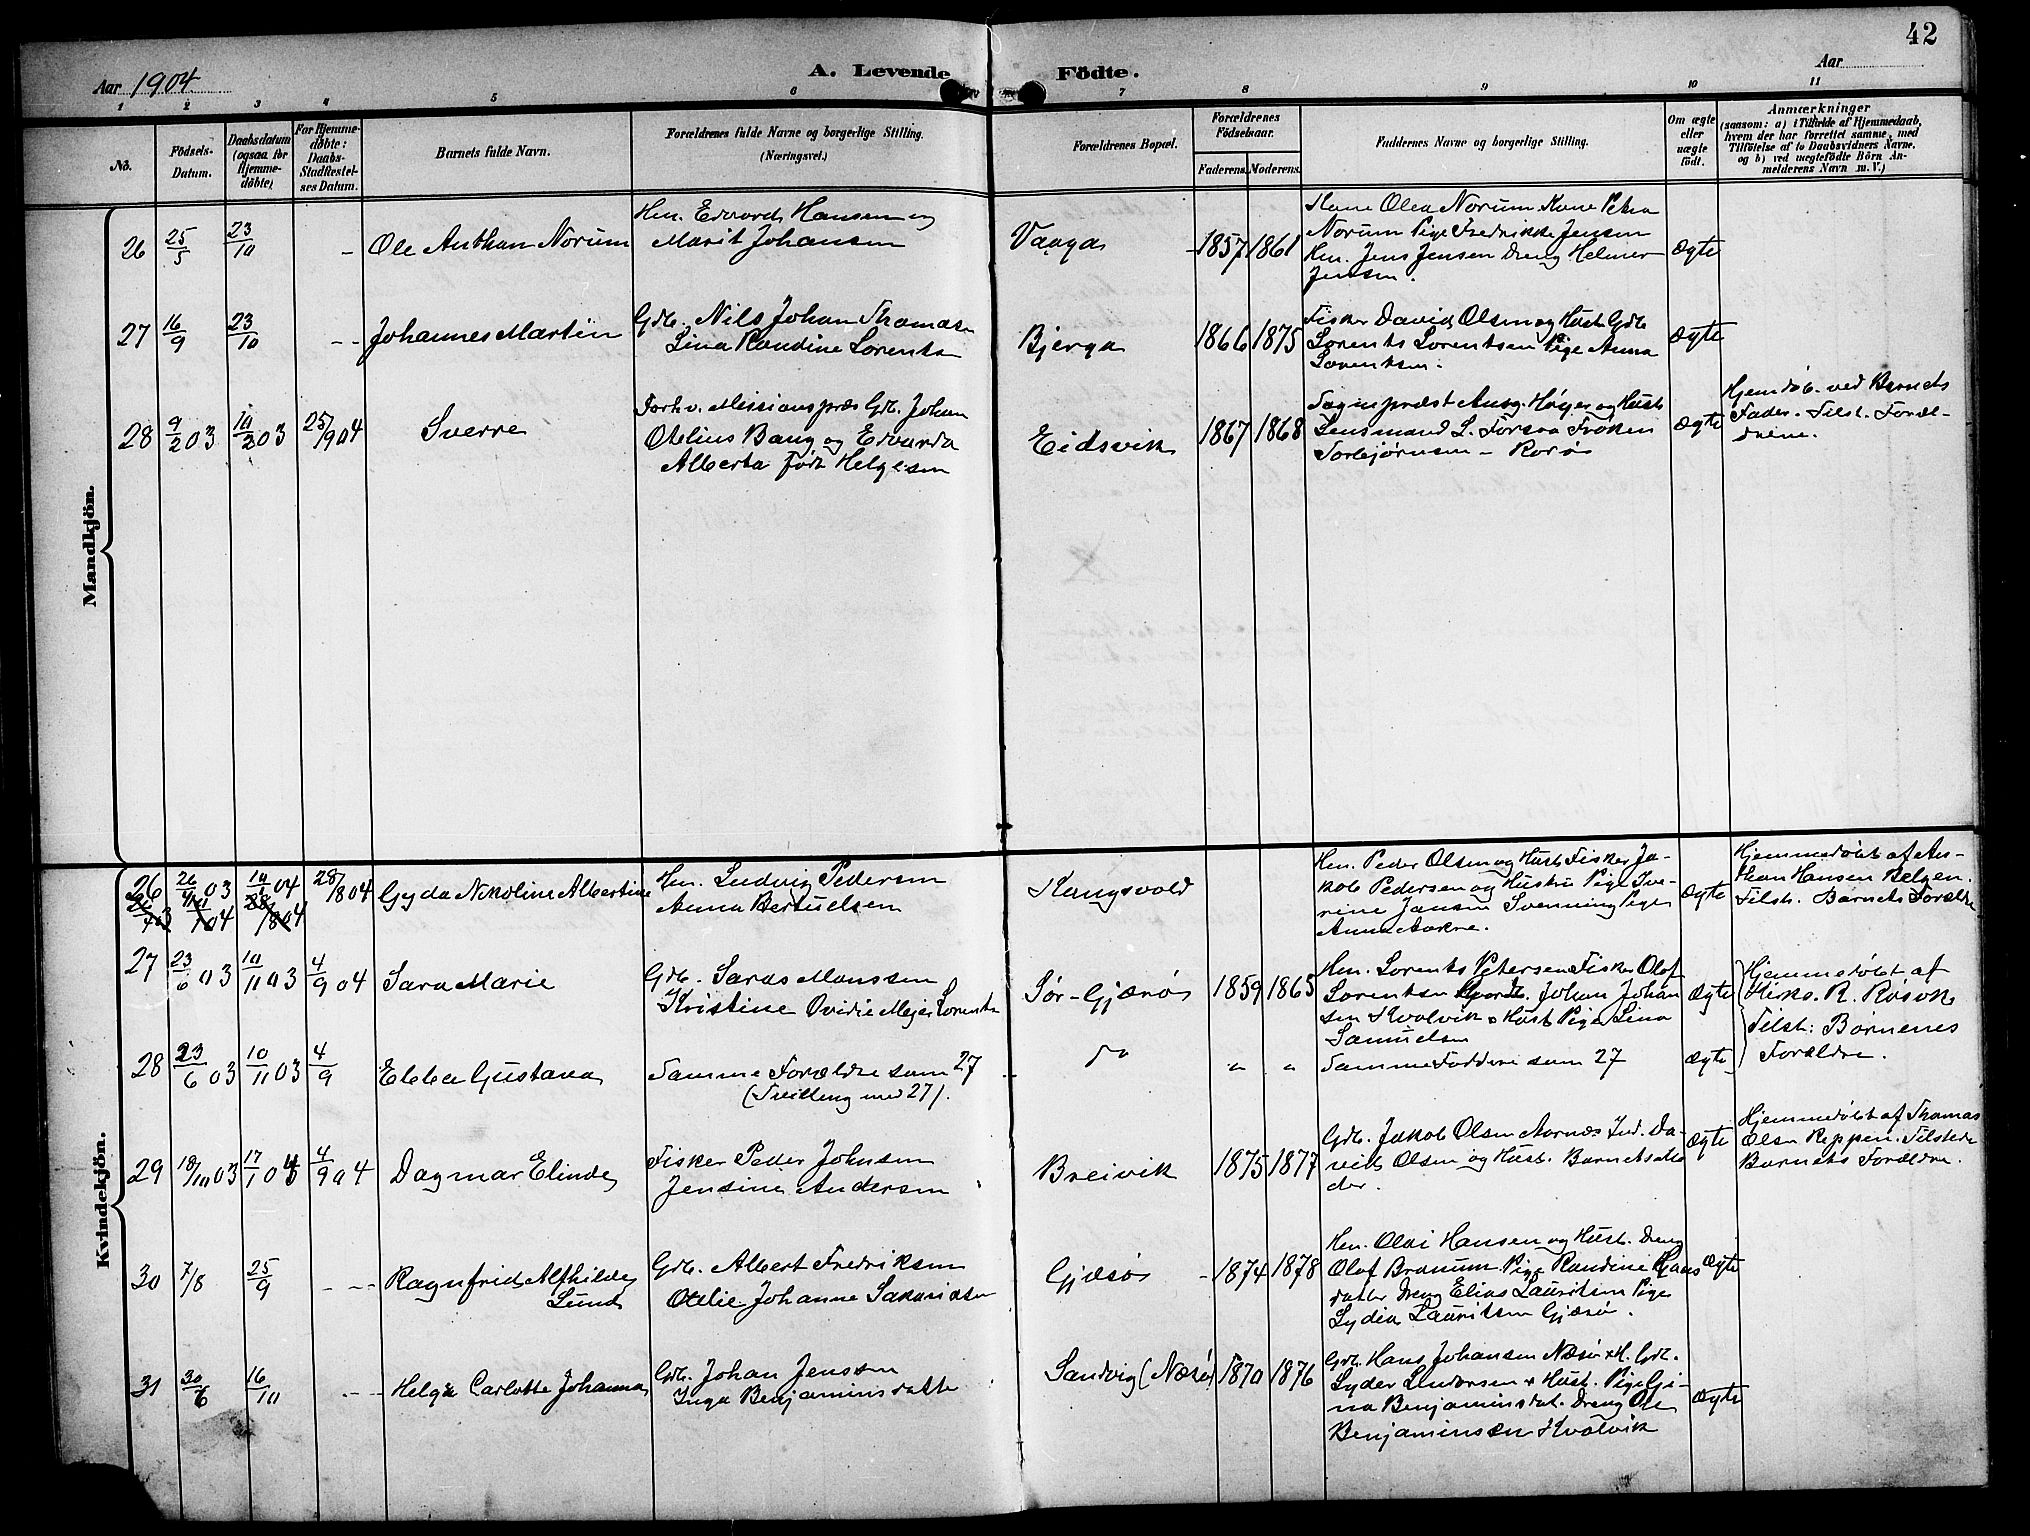 42
Aar 1904
A. Levende Födte.
Aar
1 2 3 4 5 6 7 8 9 10 11
No.
Födsels-Datum.
Daabsdatum (ogsaa for Hjemme-döbte)
For Hjemme-döbte: Daabs-Stadfæstel-ses Datum.
Barnets fulde Navn.
Forældrenes fulde Navne og borgerlige Stilling.
(Næringsvei.)
Forældrenes Bopæl.
Forældrenes Födselsaar.
Faderens. Moderens.
Faddernes Navne og borgerlige Stilling.
Om ægte eller uægte födt.
Anmærkninger
(saasom: a) i Tilfælde af Hjemmedaab,
hvem der har forrettet samme, med
Tilföielse af to Daabsvidners Navne,
og b) ved uægtefödte Börn An-
melderens Navn m. V.)
Mandkjön.
26 25/5 23/10 - Ole Anthan Norum
Hm. Edvard Hansen og
Marit Johansen
Vaaga 1857 1861
Kone Olea Norum Kone Petra
Norum Pige Fredrikke Jensen
Hm. Jens Jensen Dreng Helmer
Jensen.
Ægte
27 16/9 23/10 - - Johannes Martin
Gdb. Nils Johan Thomasen
Lina Randine Lorents
Bjerga 1866 1875
Fisker David Olsen og Hust. Gdb
Lorents Lorentsen Pige Anna
Lorentsen.
Ægte
28 9/2 03 10/2 03 25/9 04 Sverre
Forhv. Missionspræs Gdb. Johan
Otelius Baug og Edvarda
Alberta født Helgesen
Eidsvik 1867 1868
Sogneprest Aug. Høyer og Hust
Lensmand L. Forsaa Frøken
Torbjørnsen - Rorø
Ægte
Hjemdøb. ved Barnets
Fader. Tilst. Foræl-
drene.
Kvindekjön.
26 26/4 03 10/1 04 28/8 04 Gyda Nikoline Albertine
Hm. Ludvig Pedersen
Anna Bertuelsen
Kangsvold
Hm. Peder Olsen og Hust Fisker Ja-
kob Pedersen og Hustru Pige Ive-
rine Jansen Svenning Pige
Anna
Ægte
Hjemmedøbt af An-
Hansen
Tilst. Barnets Forældre
27 23/6 03 10/11 03 4/9 04 Sara Marie
Gdb. Saras Monssen
Kristine Ovidie Mejer Lorents
Sør-Gjærøy 1859 1865
Hm. Lorents Petersen Fisker Olof
Lorentsen Gaardb. Johan Johan
sen Kvalvik & Hust Pige Lina
Samuelsen
Ægte
Hjemmedøbt af
Kirks. R. Røsvik
Tilst: Børnenes
Forældre.
28 23/6 03 10/11 03 4/9 Ebba Gustava
Samme Forældre som 27
(Tvilling med 27).
Do " "
Samme Faddere som 27
Ægte
29 18/10 03 17/1 04 4/9 04 Dagmar Elinde
Fisker Peder Johnsen
Jensine Andersen
Breivik 1875 1877
Gdb. Jakob Olsen Aarnes Ind. Da-
vid Olsen og Hust. Barnets Mo
der.
Ægte
Hjemmedøbt af Thomas
Olsen Reppen. Tilstede
Barnets Forældre.
30 7/8 25/9 - -- Ragnfrid Alfhilde
Lund
Gdb. Albert Fredriksen
Otelie Johanne Sakariasen
Gjæsø - 1874 1878
Hm. Olai Hansen og Hust. Dreng
Olof Pige Randine Hans
datter Dreng Elias Lauritsen Pige
Lydia Lauritsen Gjæsø.
Ægte
31 30/6 16/10 - - - Helga Carlotte Johanna
Gdb. Johan Jenssen
Inga Benjaminsdatte
Sandvig (Næsø) 1870 1876
Gdb. Hans Johansen Næsø & H. Gdb.
Lyder Andersen & Hust. Pige Gi-
na Benjaminsdat. Dreng Ole
Benjaminsen Kvalvik
Ægte